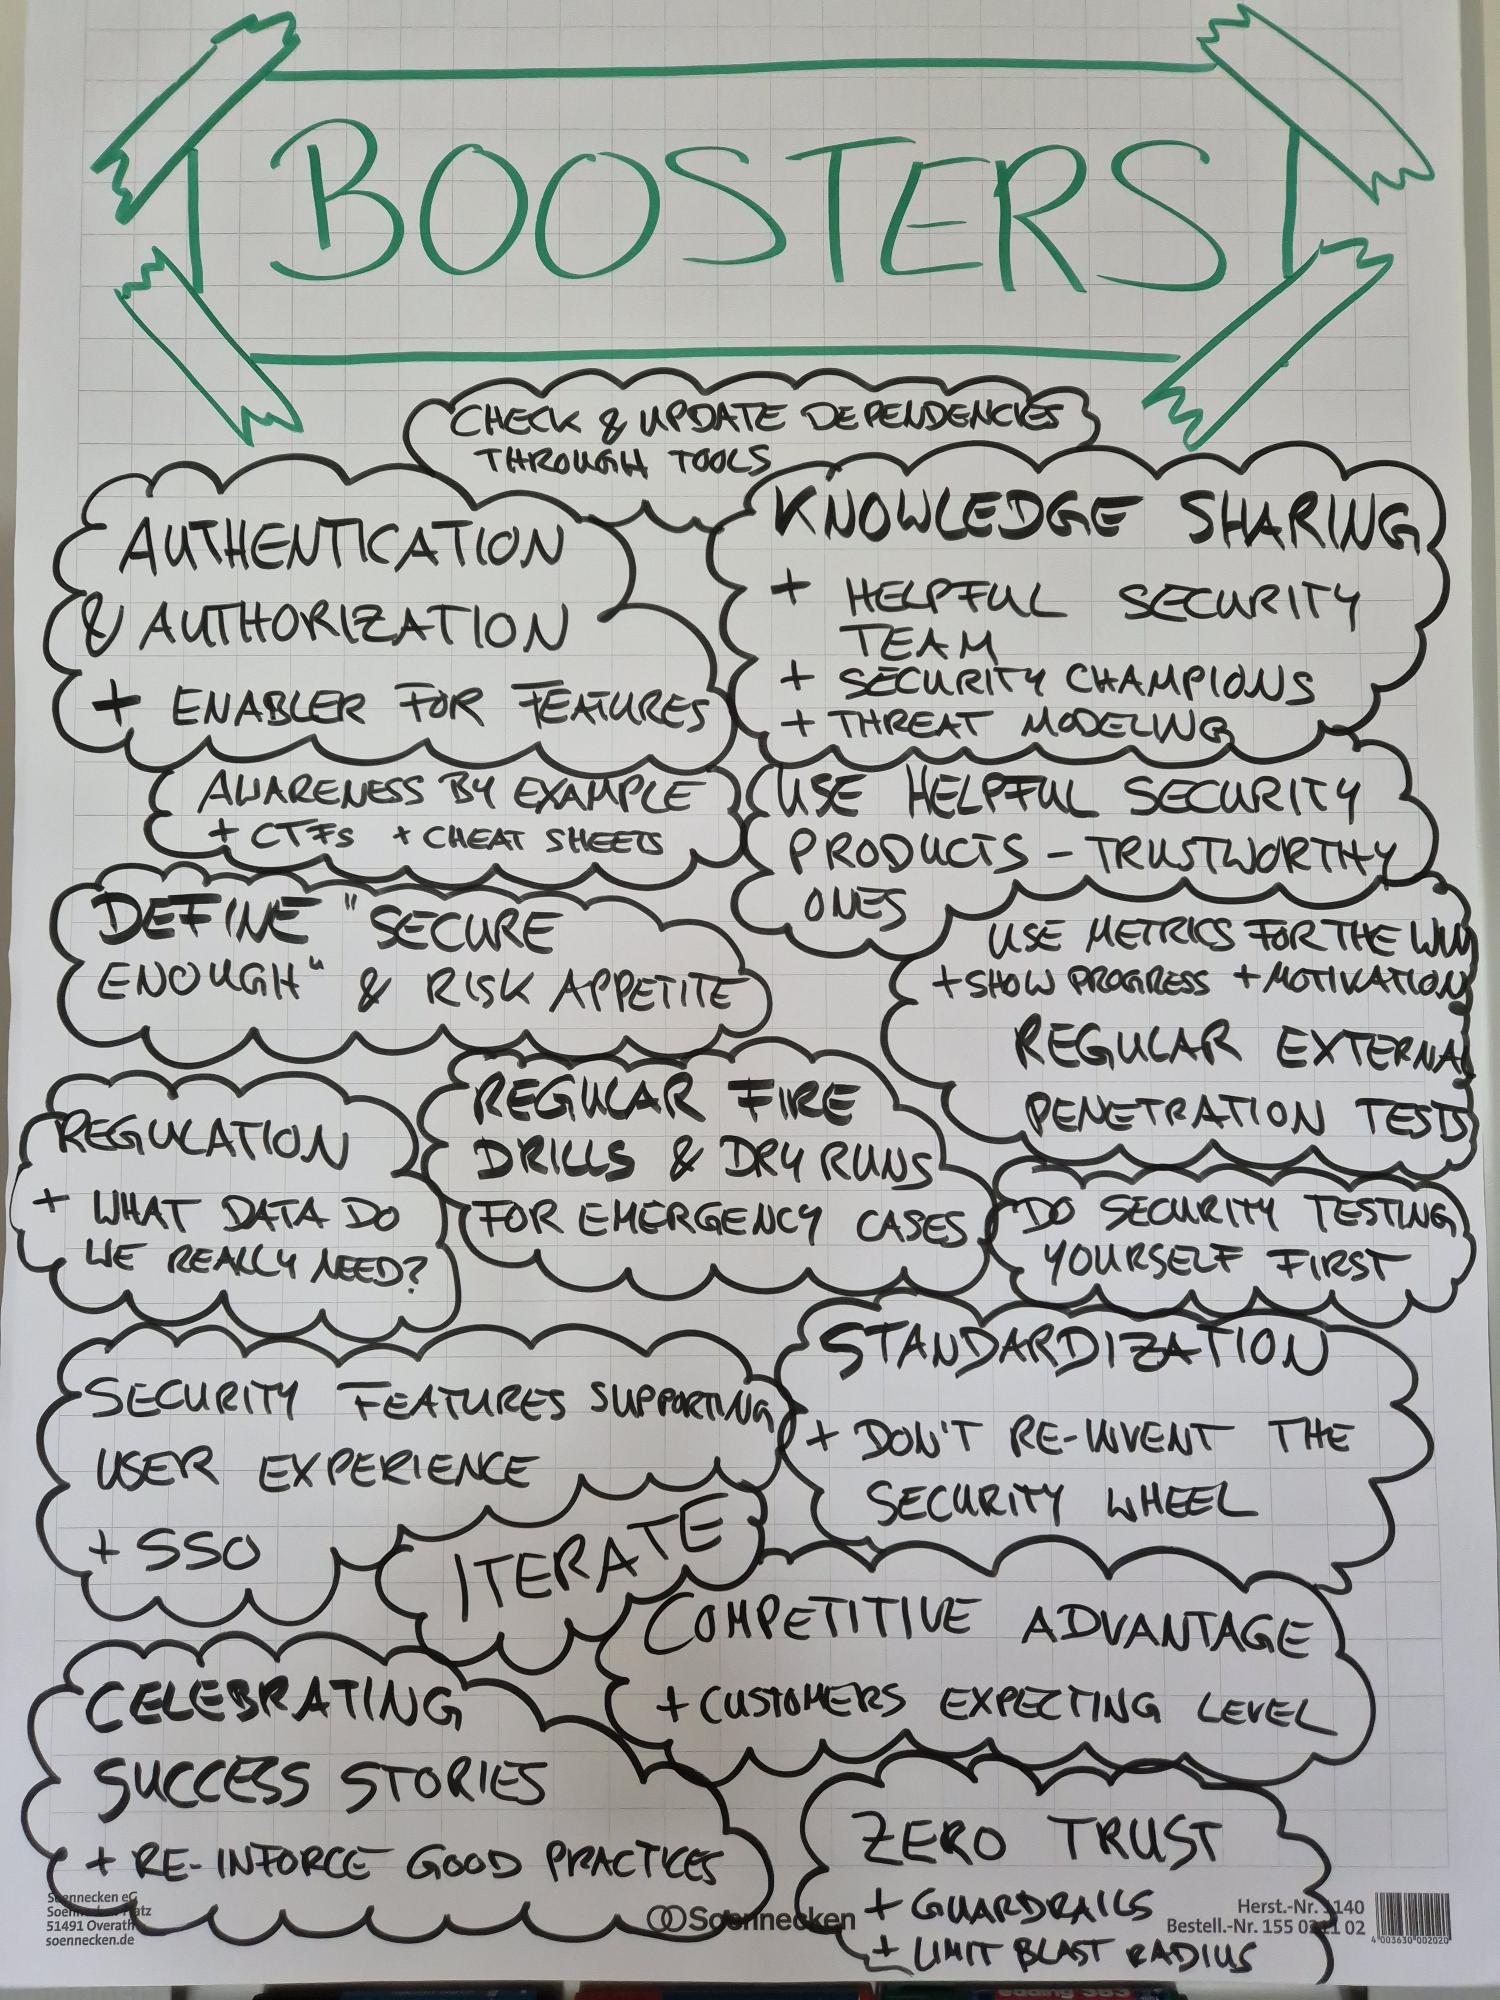 BOOSTERS
CHECK & UPDATE DEPENDENCIES
THROUGH TOOLS
AUTHENTICATION
& AUTHORIZATION
+ ENABLER FOR FEATURES
KNOWLEDGE SHARING
+ HELPFUL SECURITY
TEAM
+ SECURITY CHAMPIONS
+ THREAT MODELING
AWARENESS BY EXAMPLE
+ CTFs + CHEAT SHEETS
USE HELPFUL SECURITY
PRODUCTS - TRUSTWORTHY
ONES
DEFINE "SECURE
ENOUGH" & RISK APPETITE
USE METRICS FOR THE WIN
+ SHOW PROGRESS + MOTIVATION
REGULAR EXTERNAL
PENETRATION TESTS
REGULATION
+ WHAT DATA DO
WE REALLY NEED?
REGULAR FIRE
DRILLS & DRY RUNS
FOR EMERGENCY CASES
DO SECURITY TESTING
YOURSELF FIRST
SECURITY FEATURES SUPPORTING
USER EXPERIENCE
+ SSO
STANDARDIZATION
+ DON'T RE-INVENT THE
SECURITY WHEEL
ITERATE
COMPETITIVE ADVANTAGE
+ CUSTOMERS EXPECTING LEVEL
CELEBRATING
SUCCESS STORIES
+ RE-INFORCE GOOD PRACTICES
ZERO TRUST
+ GUARDRAILS
+ LIMIT BLAST RADIUS
Soennecken eG
51491 Overath
soennecken.de
Soennecken
Herst.-Nr. 1140
Bestell.-Nr. 155 02 02
4 003630 002020
edding 383